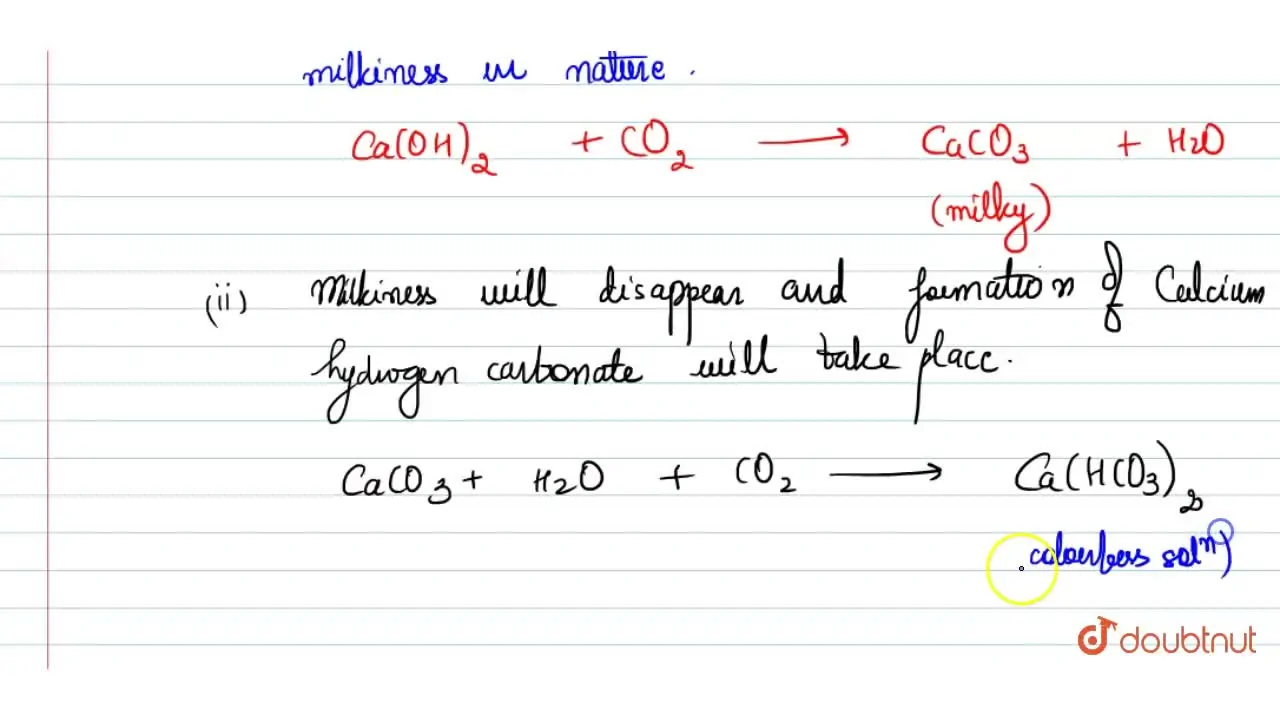 milkiness in nature.
Ca(OH)2 + CO2 → CaCO3 + H2O
(milky)
(ii) Milkiness will disappear and formation of Calcium
hydrogen carbonate will take place.
CaCO3 + H2O + CO2 → Ca(HCO3)2
colourless solⁿ)
doubtnut